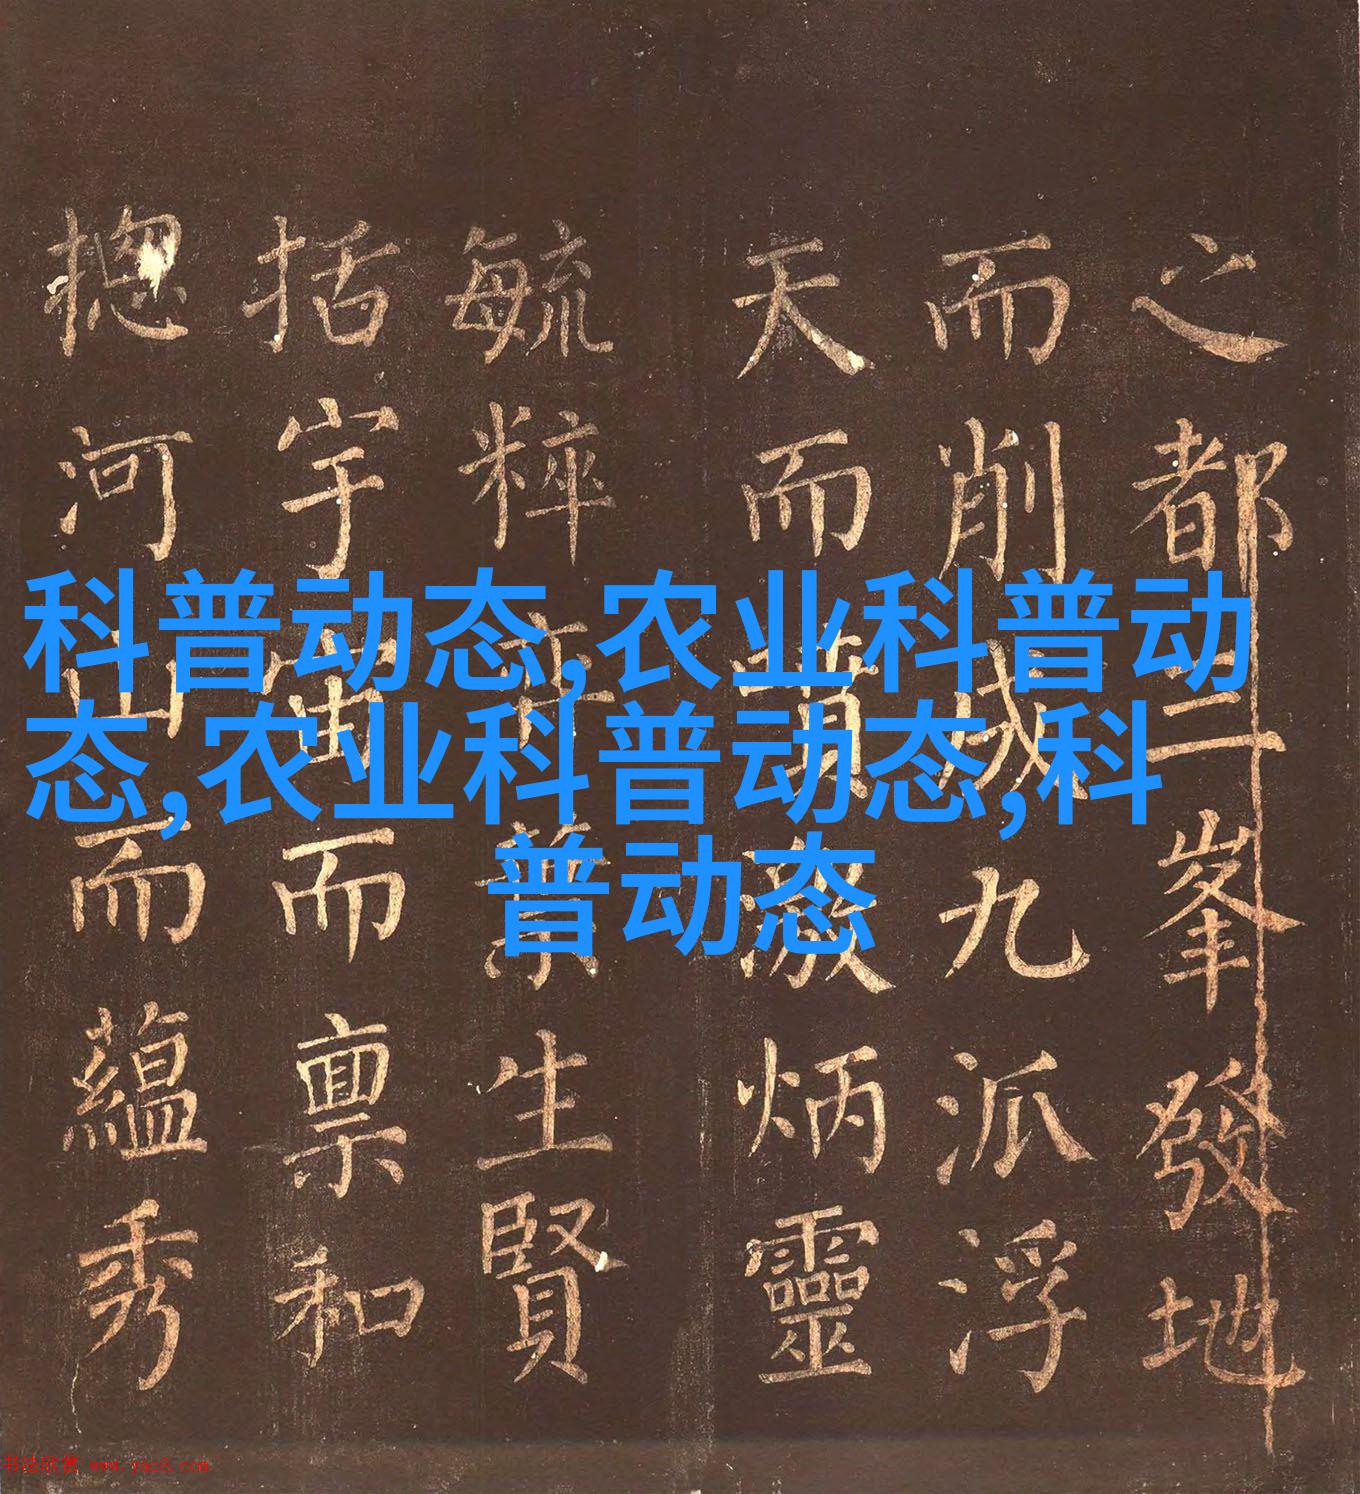 科普动态,农业科普动
态,农业科普动态,科
普动态
之都二峯發地
而削成九派浮
天而激炳靈
毓粹葉生賢
括宇宙而稟和
揔河山而蘊秀
书法欣赏 www.yac8.com